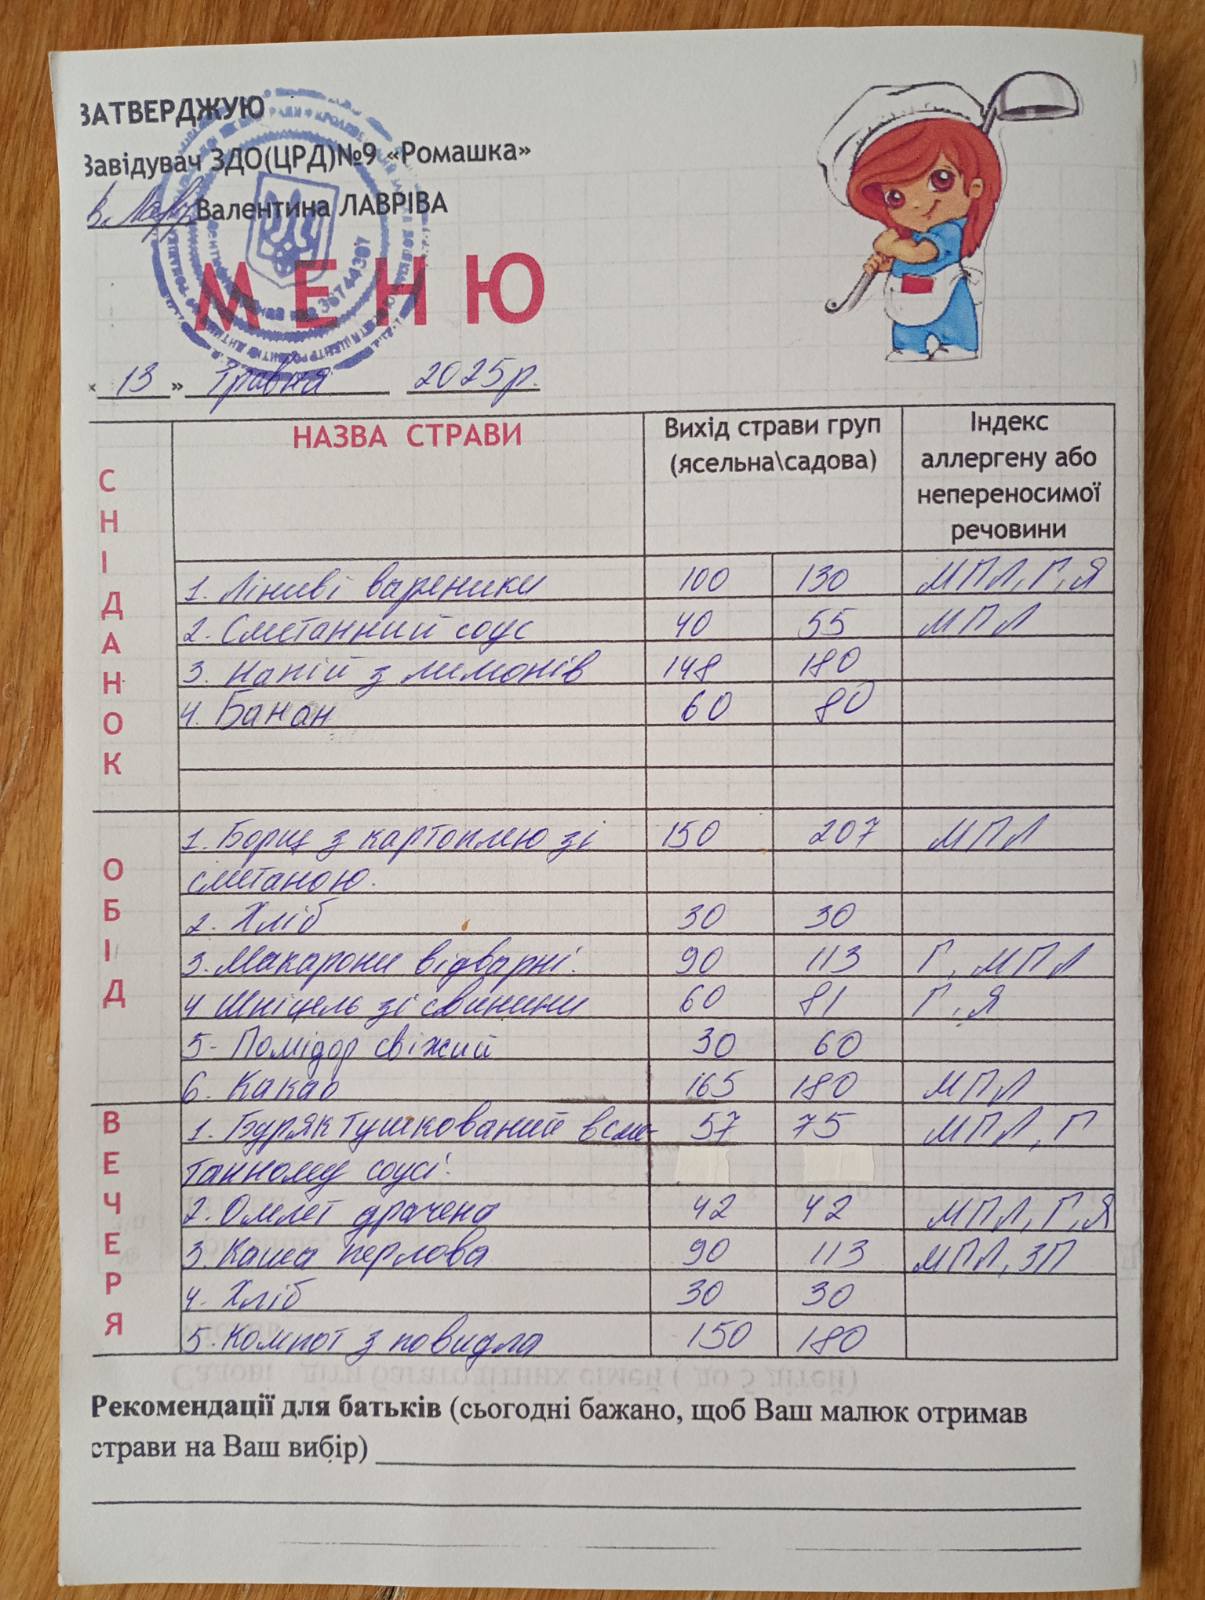 ЗАТВЕРДЖУЮ
Завідувач ЗДО(ЦРД)№9 «Ромашка»
Валентина ЛАВРІВА
МЕНЮ
« 13 » Травня 2025р.
СНІДАНОК
НАЗВА СТРАВИ Вихід страви груп (ясельна\садова) Індекс аллергену або непереносимої речовини
1. Ліниві вареники 100 130 МПЛ, Г, Я
2. Сметанний соус 40 55 МПЛ
3. Напій з лимонів 148 180
4. Банан 60 80
ОБІД
1. Борщ з картоплею зі 150 207 МПЛ
сметаною.
2. Хліб 30 30
3. Макарони відварні. 90 113 Г, МПЛ
4 Шніцель зі свинини 60 81 Г, Я
5- Помідор свіжий 30 60
6. Какао 165 180 МПЛ
ВЕЧЕРЯ
1. Буряк тушкований в сме- 57 75 МПЛ, Г
танному соусі.
2. Омлет драчена 42 42 МПЛ, Г, Я
3. Каша перлова 90 113 МПЛ, ЗП
4. Хліб 30 30
5. Компот з повидла 150 180
Рекомендації для батьків (сьогодні бажано, щоб Ваш малюк отримав
страви на Ваш вибір)